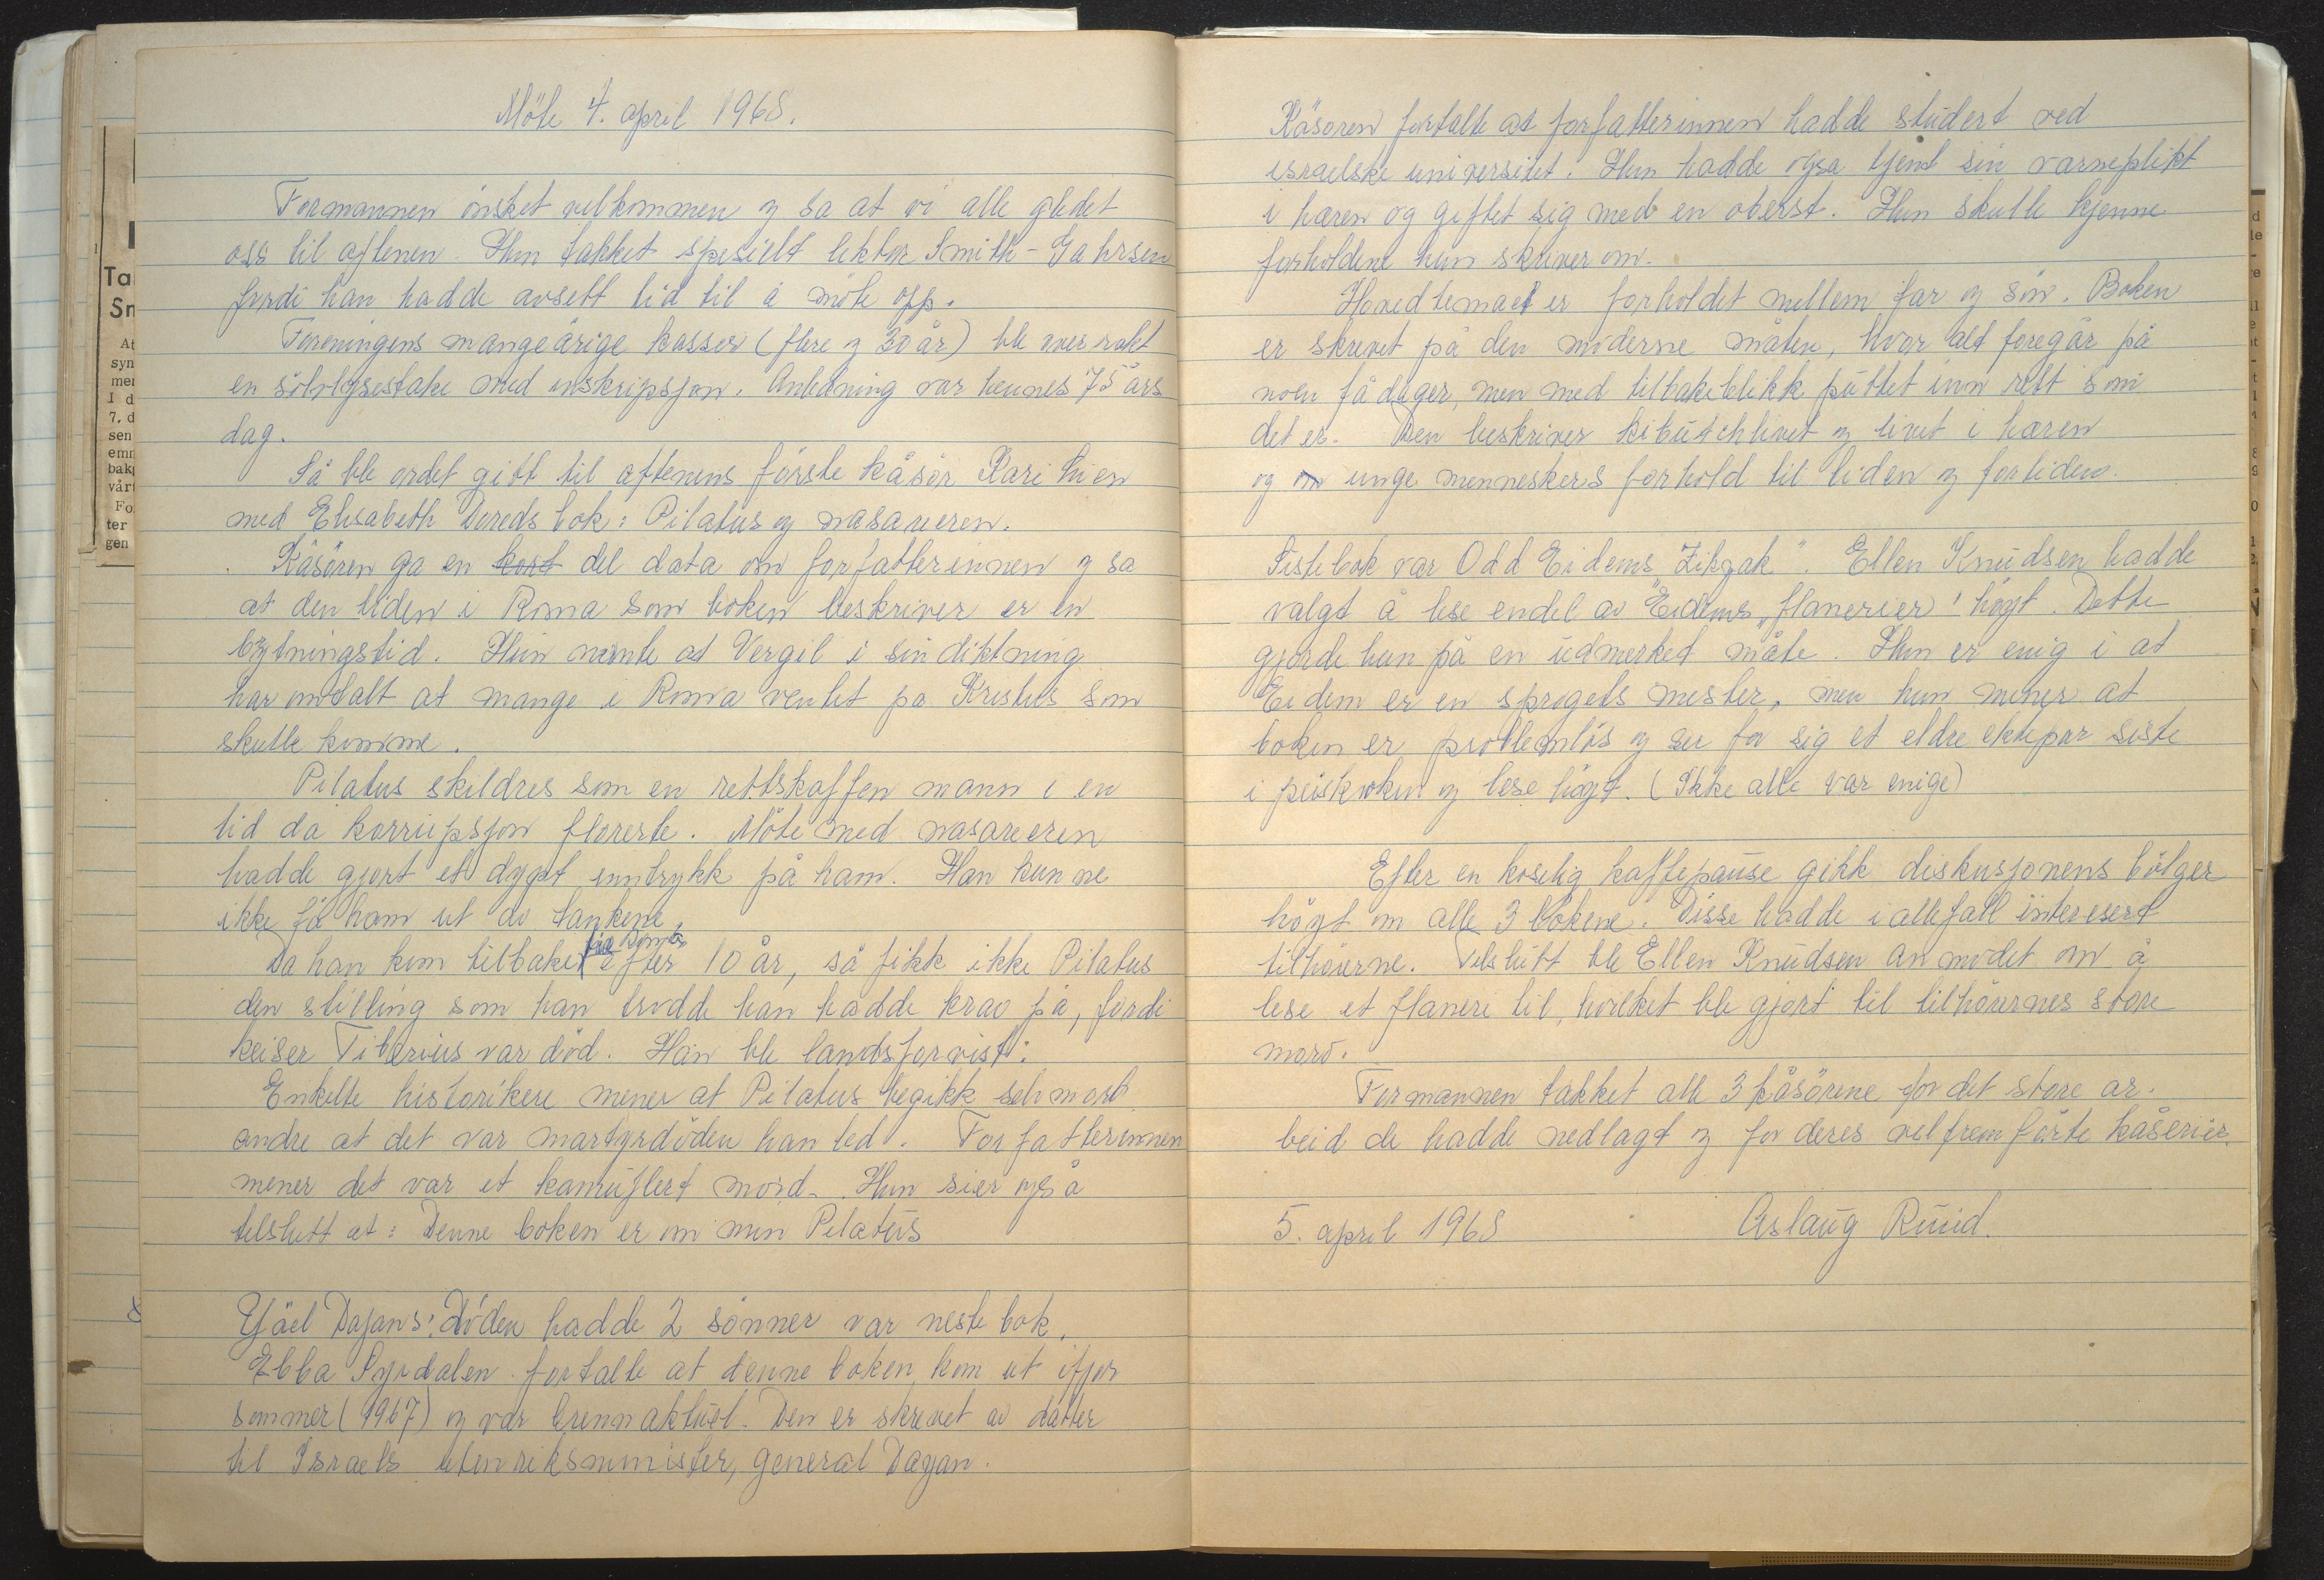 Möte 4. april 1968.
Formannen önsket velkommen og sa at vi alle gledet
oss til aftenen. Hun takket spesielt lektor Smith-Gahrsen
fordi han hadde avsett tid til å möte opp.
Foreningens mangeårige kasser (flere og 30 år) ble overrakt
en sölvlysestake med inskripsjon. Anledning var hennes 75 års
dag.
Så ble ordet gitt til aftenens förste kåsör Kari Lien
med Elisabeth Dereds bok: Pilatus og nasareeren.
Kåsören ga en kort del data om forfatterinnen og sa
at den tiden i Roma som boken beskriver er en
brytningstid. Hun nevnte at Vergil i sin diktning
har omtalt at mange i Roma ventet på Kristus som
skulle komme.
Pilatus skildres som en rettskaffen mann i en
tid da korrupsjon florerte. Möte med nasareeren
hadde gjort et dypt inntrykk på ham. Han kunne
ikke få ham ut av tankene.
Da han kom tilbake til Roma efter 10 år, så fikk ikke Pilatus
den stilling som han trodde han hadde krav på, fordi
keiser Tiberius var död. Han ble landsforvist.
Enkelte historikere mener at Pilatus begikk selvmord
andre at det var martyrdöden han led. Forfatterinnen
mener det var et kamuflert mord. Hun sier også
tilslutt at: Denne boken er om min Pilatus
Yäel Dajans: Döden hadde 2 sönner var neste bok.
Ebba Syrdalen fortalte at denne boken kom ut ifjor
sommer (1967) og var brennaktuel. Den er skrevet av datter
til Israels utenriksminister, general Dayan.
Kåsören fortalte at forfatterinnen hadde studert ved
israelske universitet. Hun hadde også tjent sin varneplikt
i hæren og giftet sig med en oberst. Hun skulle kjenne
forholdene hun skriver om.
Hovedtemaet er forholdet mellem far og sön. Boken
er skrevet på den moderne måten, hvor alt foregår på
noen få dager, men med tilbakeblikk puttet inn rett som
det er. Den beskriver kibutchlivet og livet i hæren
og om unge menneskers forhold til tiden og fortiden.
Siste bok var Odd Eidems "Zikzak". Ellen Knudsen hadde
valgt å lese endel av Eidems "flanerier" höyt. Dette
gjorde hun på en udmerket måte. Hun er enig i at
Eidem er en sprogets mester, men hun mener at
boken er problemlös og ser for sig et eldre ektepar siste
i peiskroken og lese höyt. (Ikke alle var enige)
Efter en koselig kaffepause gikk diskusjonens bölger
höyt om alle 3 bökene. Disse hadde i allefall interesert
tilhörerne. Tilslutt ble Ellen Knudsen anmodet om å
lese et flaneri til, hvilket ble gjort til tilhörernes store
moro.
Formannen takket alle 3 kåsörene for det store ar-
beid de hadde nedlagt og for deres velfremförte kåserier.
5. april 1968 Aslaug Ruud.
Ta
Sn
At
syn
mer
I d
7. d
sen
emn
bakg
vårt
Fo
ter
gen